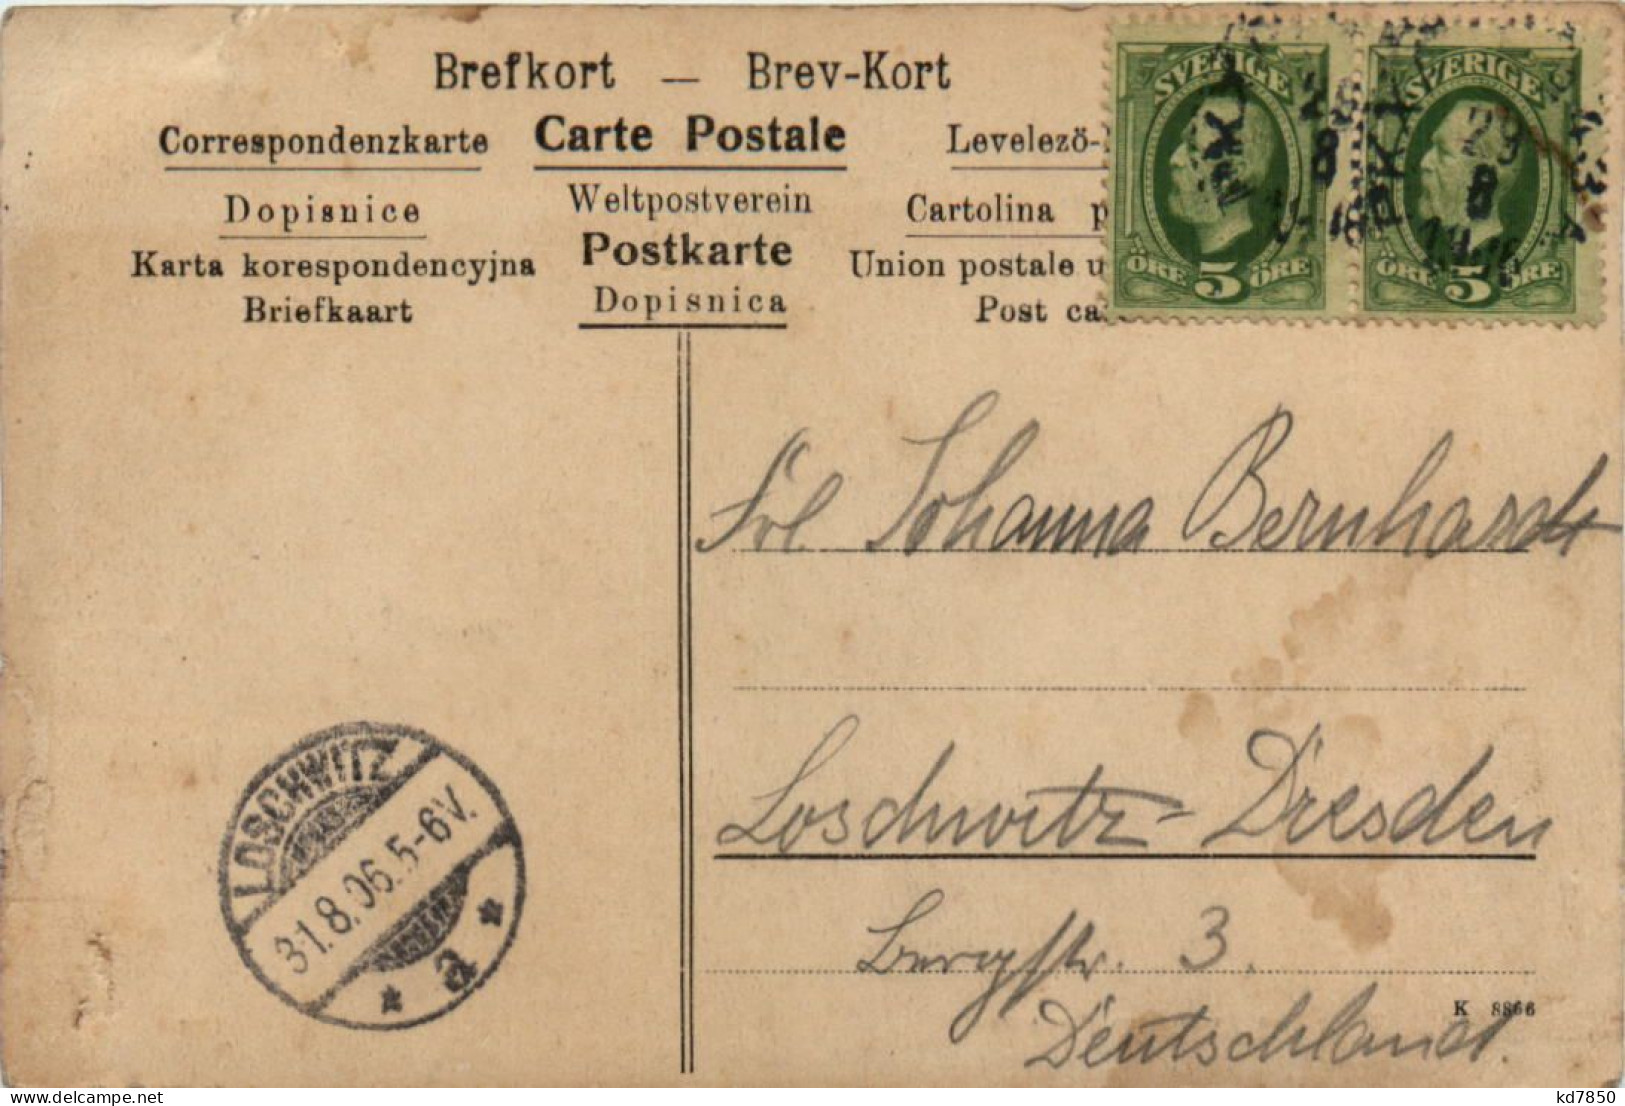 Brefkort — Brev-Kort
Correspondenzkarte Carte Postale Levelező-
Dopisnice Weltpostverein Cartolina p
Karta korespondencyjna Postkarte Union postale u
Briefkaart Dopisnica Post ca
SVERIGE SVERIGE
PKXP PKXP
29
8 8
ÖRE 5 ÖRE ÖRE 5 ÖRE
Frl Johanna Bernhardt
Loschwitz-Dresden
Bergstr. 3.
Deutschland.
K 8866
LOSCHWITZ
31.8.06.5-6V.
* a *
kd7850